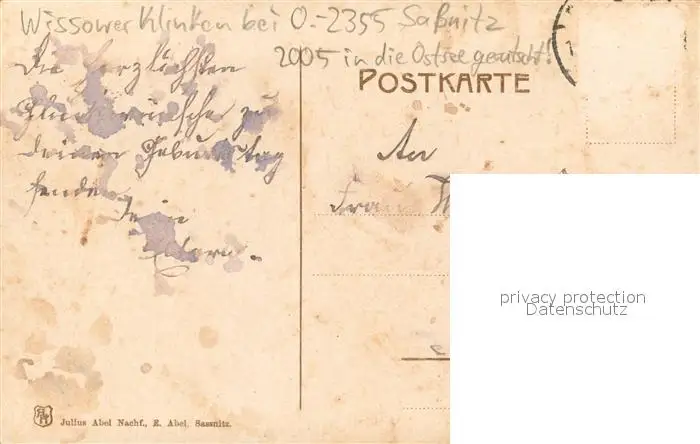 Wissower Klinken bei O.-2355 Saßnitz
2005 in die Ostsee gerutscht!
POSTKARTE
Die herzlichsten
Glückwünsche zu
deinem Geburtstag
sendet
An
Frau
privacy protection
Datenschutz
Julius Abel Nachf., E. Abel, Sassnitz.